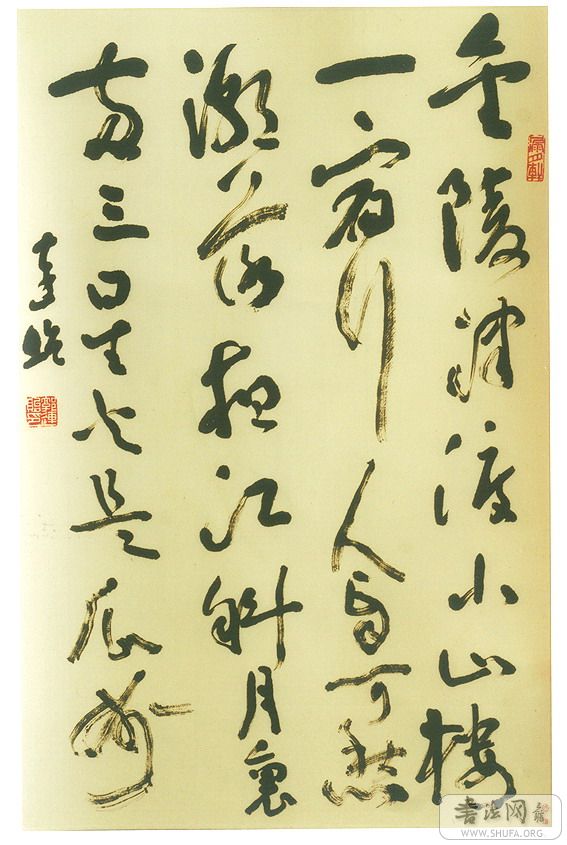 金陵津渡小山楼
一宿行人自可愁
潮落夜江斜月裏
两三星火是瓜州
書法网
WWW.SHUFA.ORG